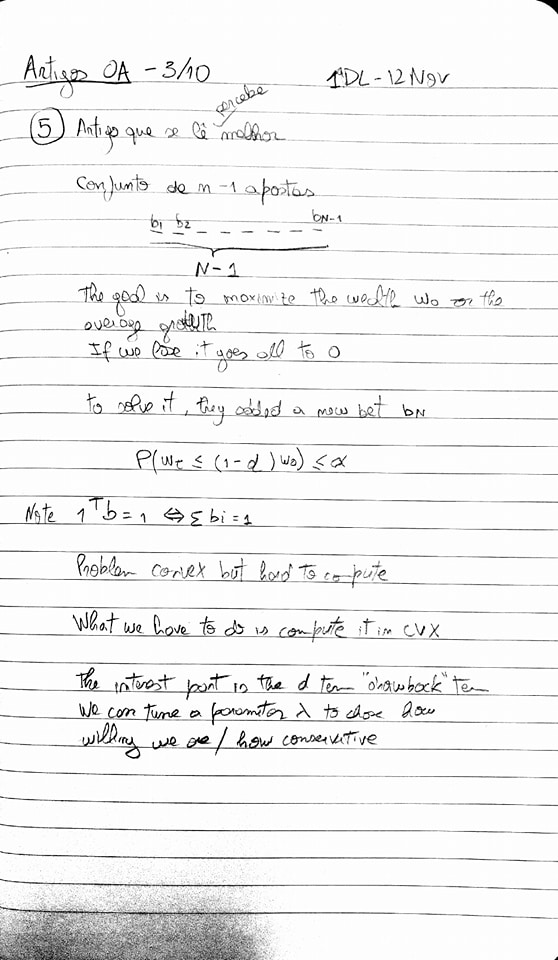 Artigos OA - 3/10
1ªDL - 12 Nov
percebe
5 Artigo que se lê melhor
Conjunto de n-1 apostas
b1 b2 _ _ _ _ _ bN-1
N-1
The goal is to maximize the wealth w0 or the
average growth
If we lose it goes all to 0
to solve it, they added a new bet bN
P(wt ≤ (1-d)w0) ≤ α
Note 1ᵀb = 1 ⇔ Σ bi = 1
Problem convex but hard to compute
What we have to do is compute it in CVX
The interest part is the d term "drawback" ter
We can tune a parameter λ to chose how
willing we are / how conservative